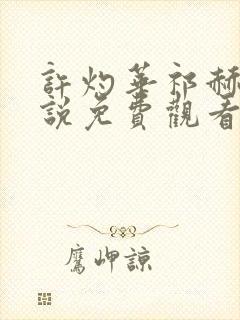 許灼華祁赫
說免費觀看
鷹岬諒